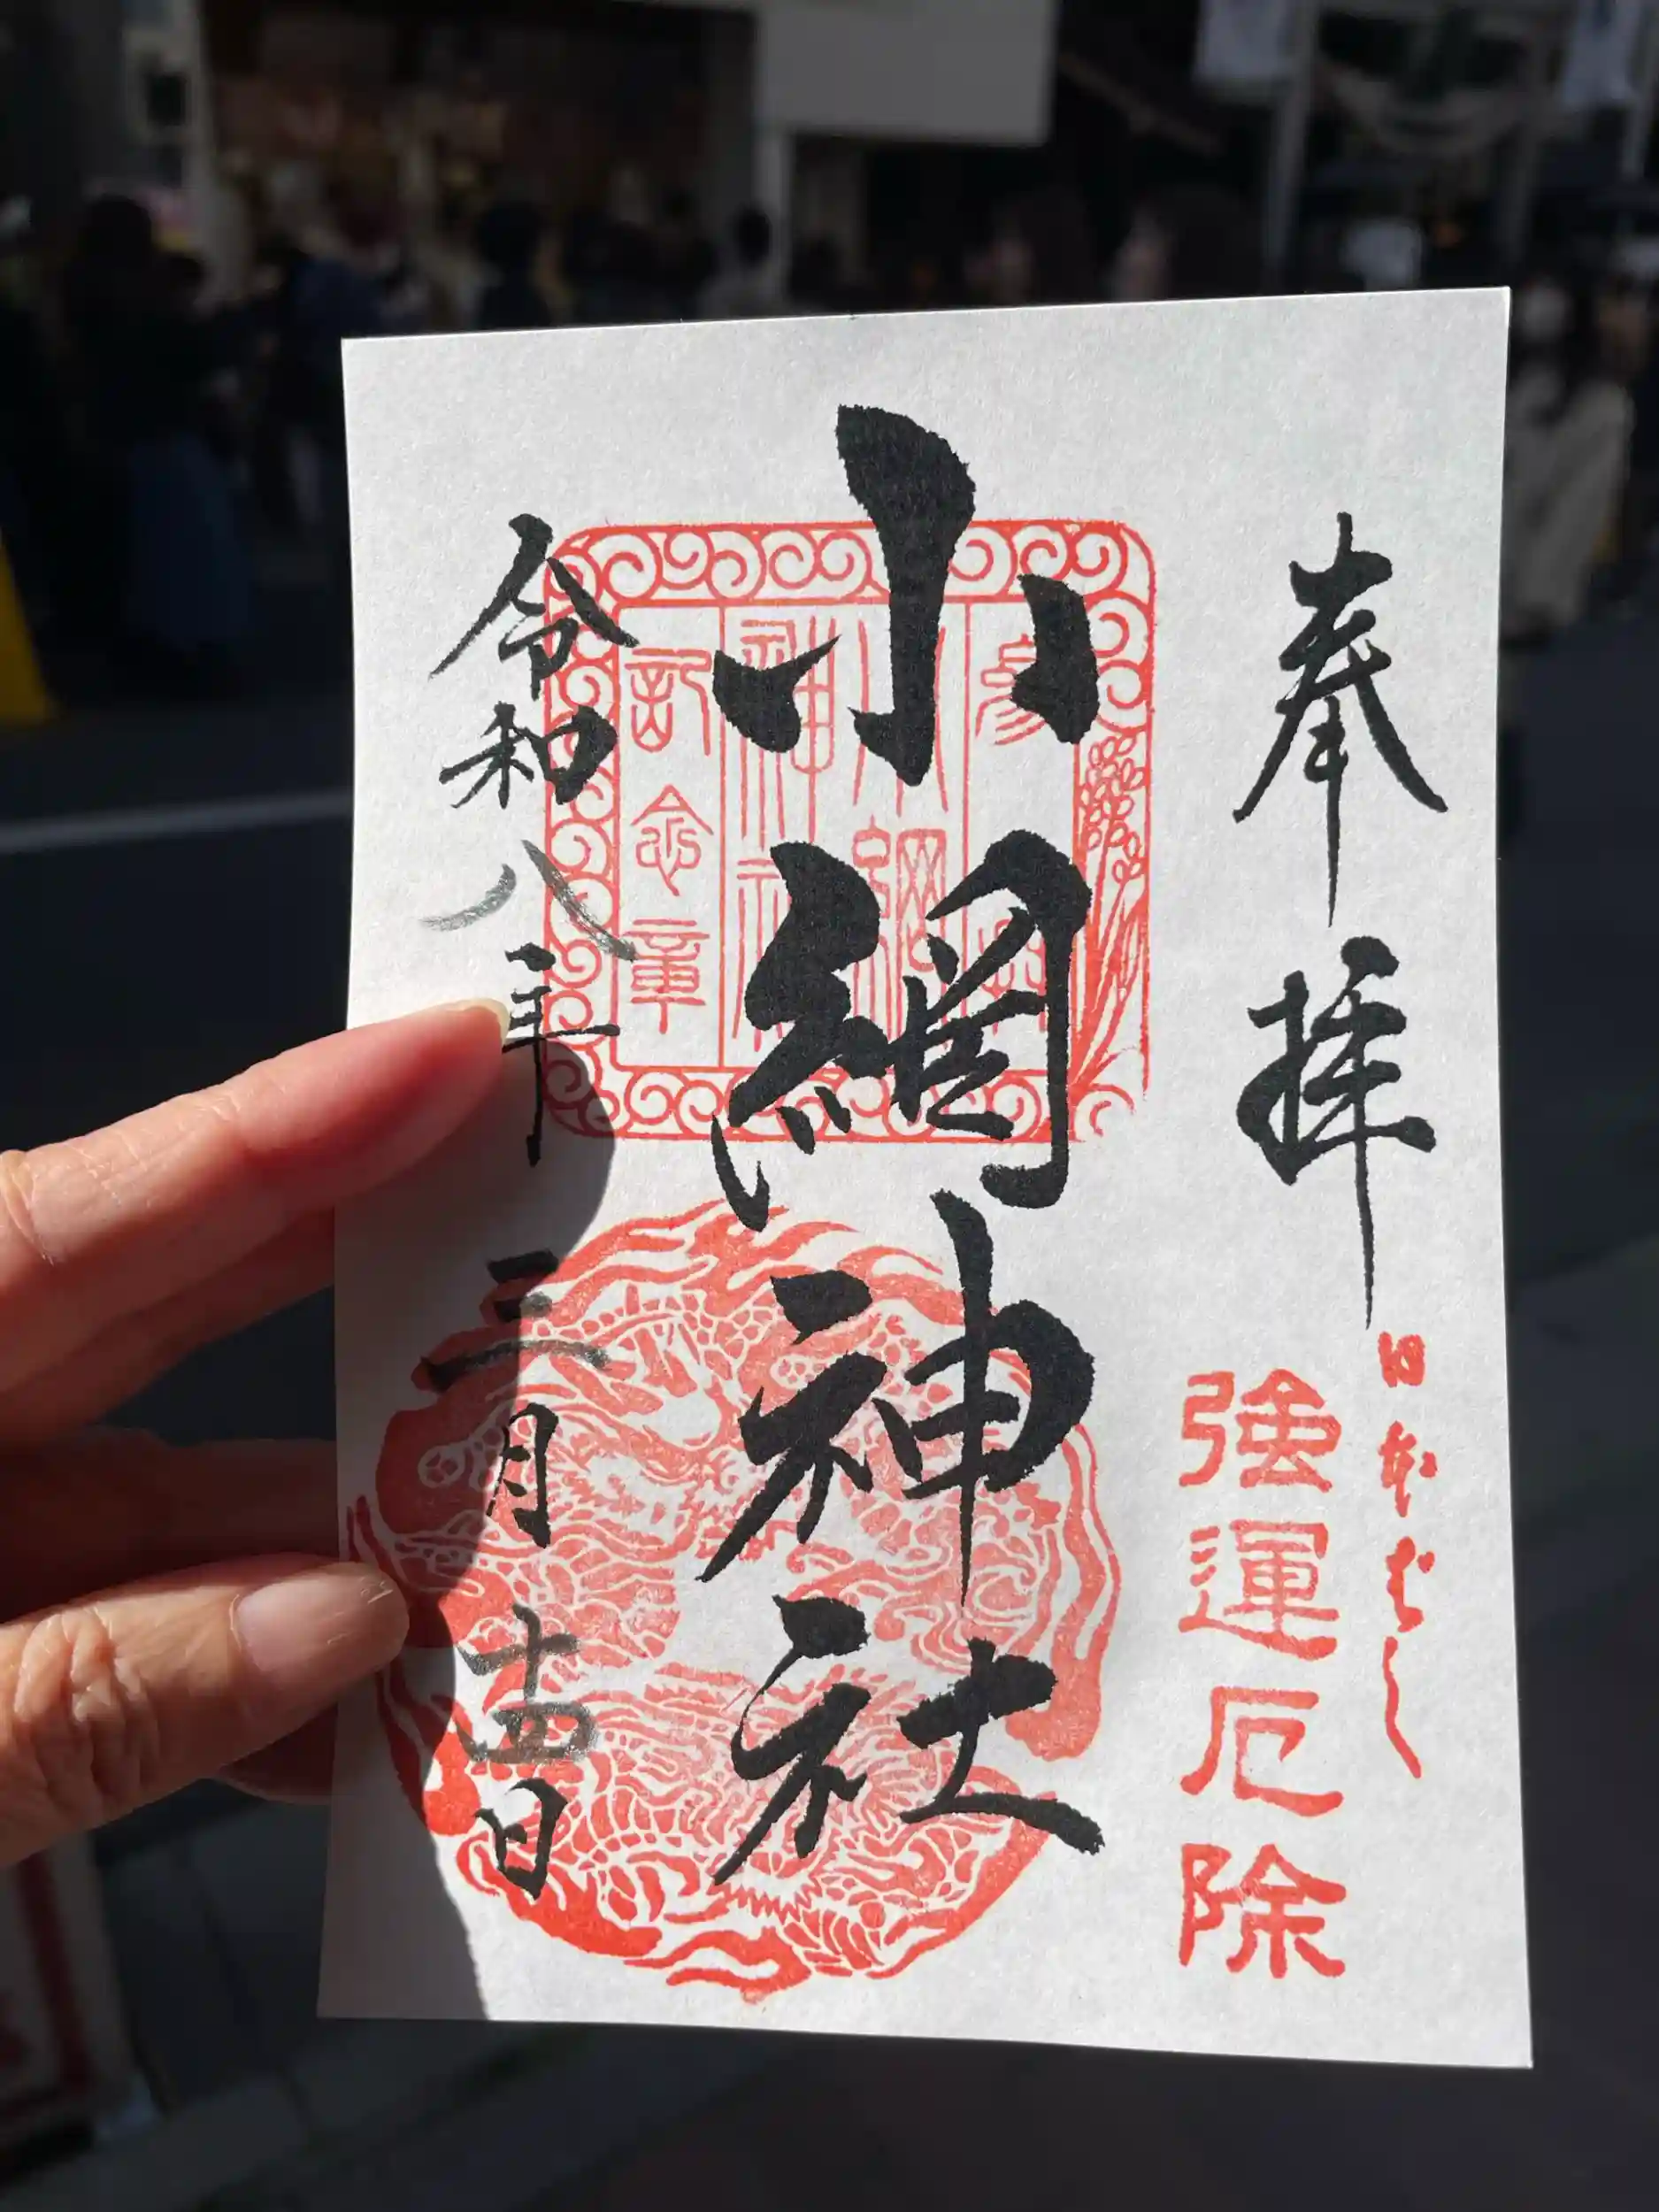 奉拝
日本ばし
強運厄除
小網神社
小網
神社
記念章
令和八年三月十四日